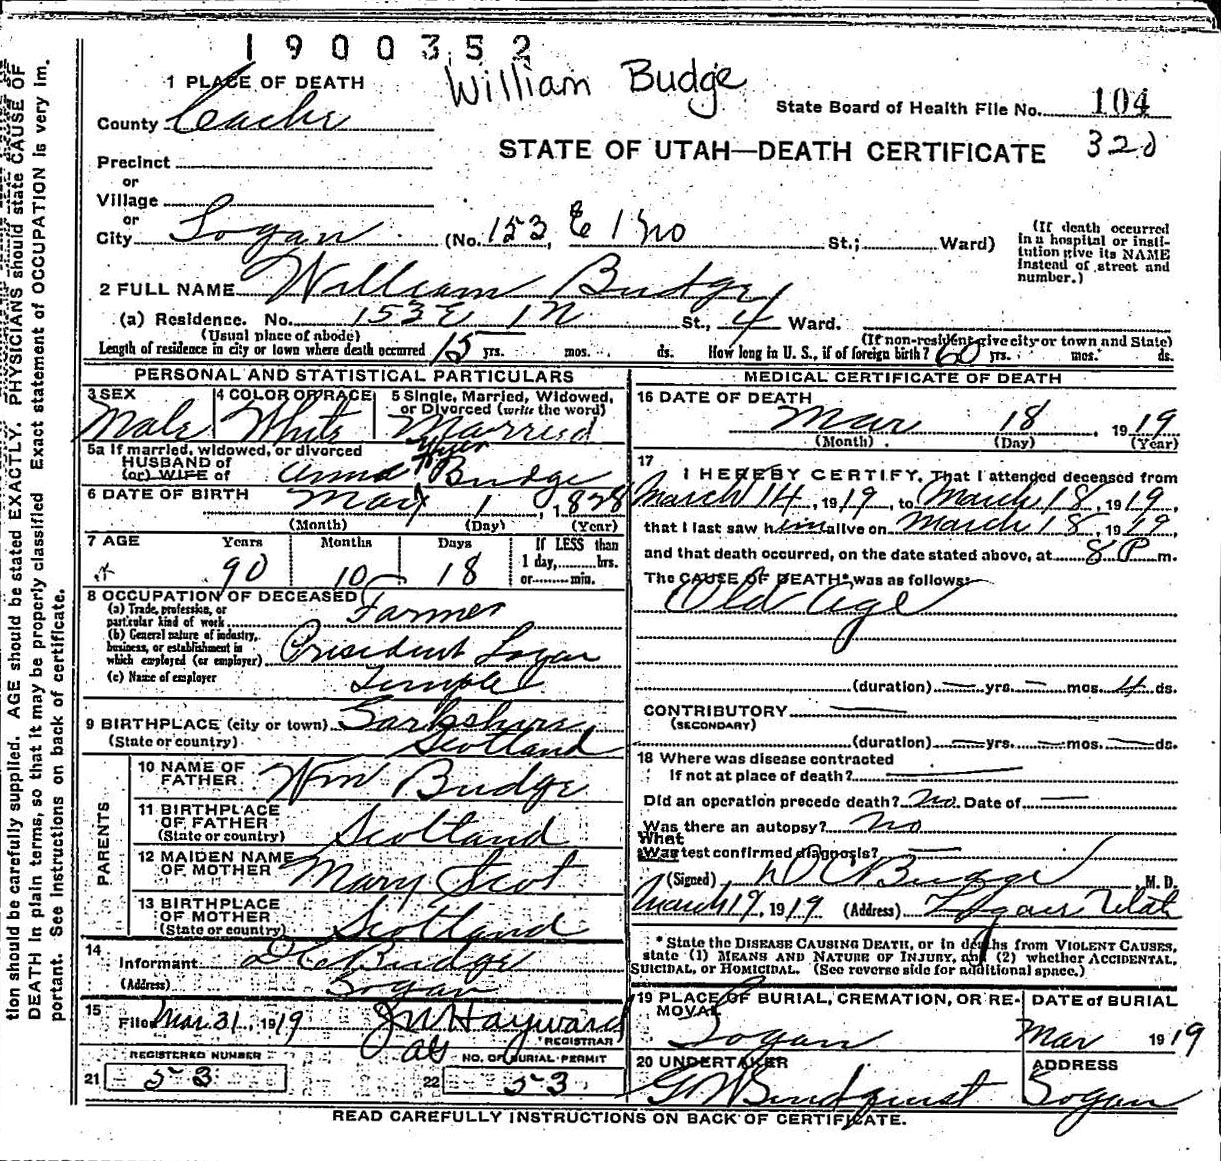 1900352
1 PLACE OF DEATH
William Budge
State Board of Health File No. 104
County Cache
STATE OF UTAH—DEATH CERTIFICATE 320
Precinct
or
Village
or
City Logan (No. 153 E 1 No St.; Ward)
(If death occurred in a hospital or institution give its NAME instead of street and number.)
2 FULL NAME William Budge
(a) Residence. No. 153 E 1 N St., 4 Ward.
(Usual place of abode) (If non-resident give city or town and State)
Length of residence in city or town where death occurred 15 yrs. mos. ds. How long in U. S., if of foreign birth? 60 yrs. mos. ds.
PERSONAL AND STATISTICAL PARTICULARS
3 SEX Male
4 COLOR OR RACE White
5 Single, Married, Widowed, or Divorced (write the word) Married
5a If married, widowed, or divorced
HUSBAND of
(or) WIFE of Anna Hyer Budge
6 DATE OF BIRTH May 1, 1828
(Month) (Day) (Year)
7 AGE Years Months Days If LESS than
90 10 18 1 day, hrs.
or min.
8 OCCUPATION OF DECEASED
(a) Trade, profession, or particular kind of work Farmer
(b) General nature of industry, business, or establishment in which employed (or employer) President Logan
(c) Name of employer Temple
9 BIRTHPLACE (city or town)
(State or country) Scotland
PARENTS
10 NAME OF FATHER Wm Budge
11 BIRTHPLACE OF FATHER (State or country) Scotland
12 MAIDEN NAME OF MOTHER Mary Scot
13 BIRTHPLACE OF MOTHER (State or country) Scotland
14
Informant D C Budge
(Address) Logan
15
Filed Mar 31, 1919 J W Hayward
REGISTRAR
REGISTERED NUMBER NO. OF BURIAL PERMIT
21 53 22 53
MEDICAL CERTIFICATE OF DEATH
16 DATE OF DEATH
Mar 18, 1919
(Month) (Day) (Year)
17
I HEREBY CERTIFY, That I attended deceased from
March 14, 1919, to March 18, 1919,
that I last saw him alive on March 18, 1919,
and that death occurred, on the date stated above, at 8 P m.
The CAUSE OF DEATH* was as follows:
Old age
(duration) — yrs. — mos. 4 ds.
CONTRIBUTORY —
(SECONDARY)
(duration) — yrs. — mos. — ds.
18 Where was disease contracted
If not at place of death? —
Did an operation precede death? No. Date of —
Was there an autopsy? No
What
Was test confirmed diagnosis? —
(Signed) D C Budge, M. D.
March 19, 1919 (Address) Logan Utah
* State the DISEASE CAUSING DEATH, or in deaths from VIOLENT CAUSES,
state (1) MEANS AND NATURE OF INJURY, and (2) whether ACCIDENTAL,
SUICIDAL, or HOMICIDAL. (See reverse side for additional space.)
19 PLACE OF BURIAL, CREMATION, OR REMOVAL Logan
DATE of BURIAL
Mar 1919
20 UNDERTAKER
ADDRESS
Logan
READ CAREFULLY INSTRUCTIONS ON BACK OF CERTIFICATE.
tion should be carefully supplied. AGE should be stated EXACTLY. PHYSICIANS should state CAUSE OF
DEATH in plain terms, so that it may be properly classified. Exact statement of OCCUPATION is very im-
portant. See instructions on back of certificate.